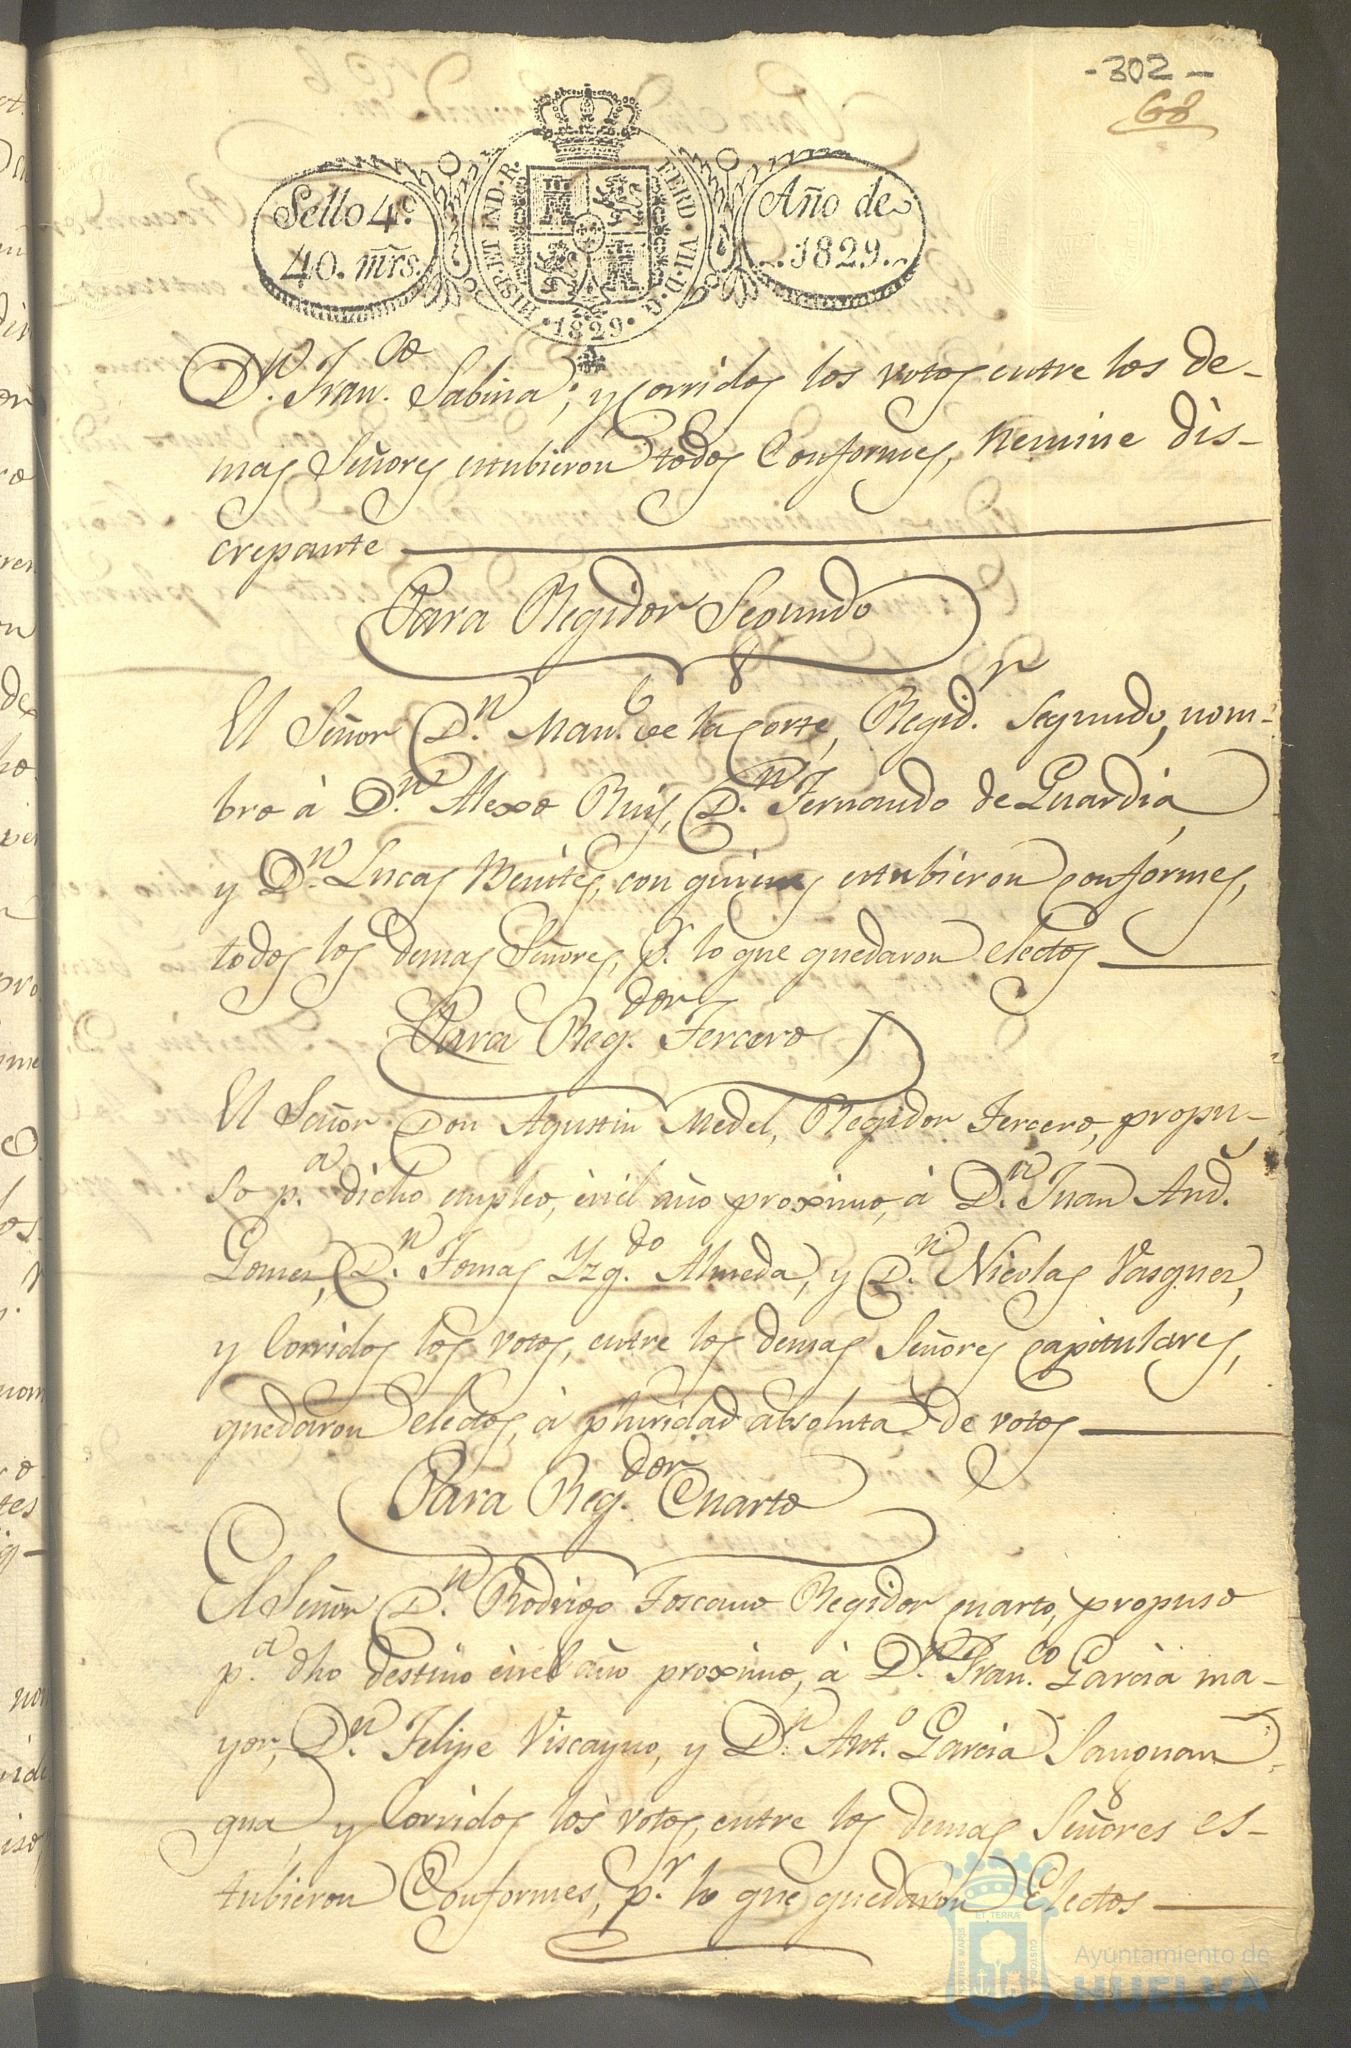 -302-
68
Sello 4º
40. mrs.
HISP. ET IND. R.
FERD. VII. D. G.
·1829·
Año de
1829.
D.n Fran.co Sabina; y corridos los votos entre los de-
mas Señores estubieron todos Conformes, Nemine dis-
crepante
Para Regidor Segundo
El Señor D.n Man.l de la Corte, Regid.r Segundo, nom-
bro à D.n Alexo Ruiz, D.n Fernando de Guardia,
y D.n Lucas Benites, con quienes estubieron conformes,
todos los demas Señores, p.r lo que quedaron electos
Para Reg.dor Tercero
El Señor Don Agustin Medel, Regidor Tercero, propu-
so p.a dicho empleo, en el año proximo, à D.n Juan And.s
Gomez, D.n Tomas Yzq.do Almeda, y D.n Nicolas Vasquez,
y Corridos los votos, entre los demas Señores capitulares,
quedaron electos, à pluridad absoluta de votos
Para Reg.dor Cuarto
El Señor D.n Rodrigo Toscano Regidor cuarto, propuso
p.a dho destino en el año proximo, à D.n Fran.co Garcia ma-
yor, D.n Felipe Viscayno, y D.n Ant.o Garcia
y Corridos los votos, entre los demas Señores es-
tubieron Conformes, p.r lo que quedaron Electos
Ayuntamiento de
HUELVA